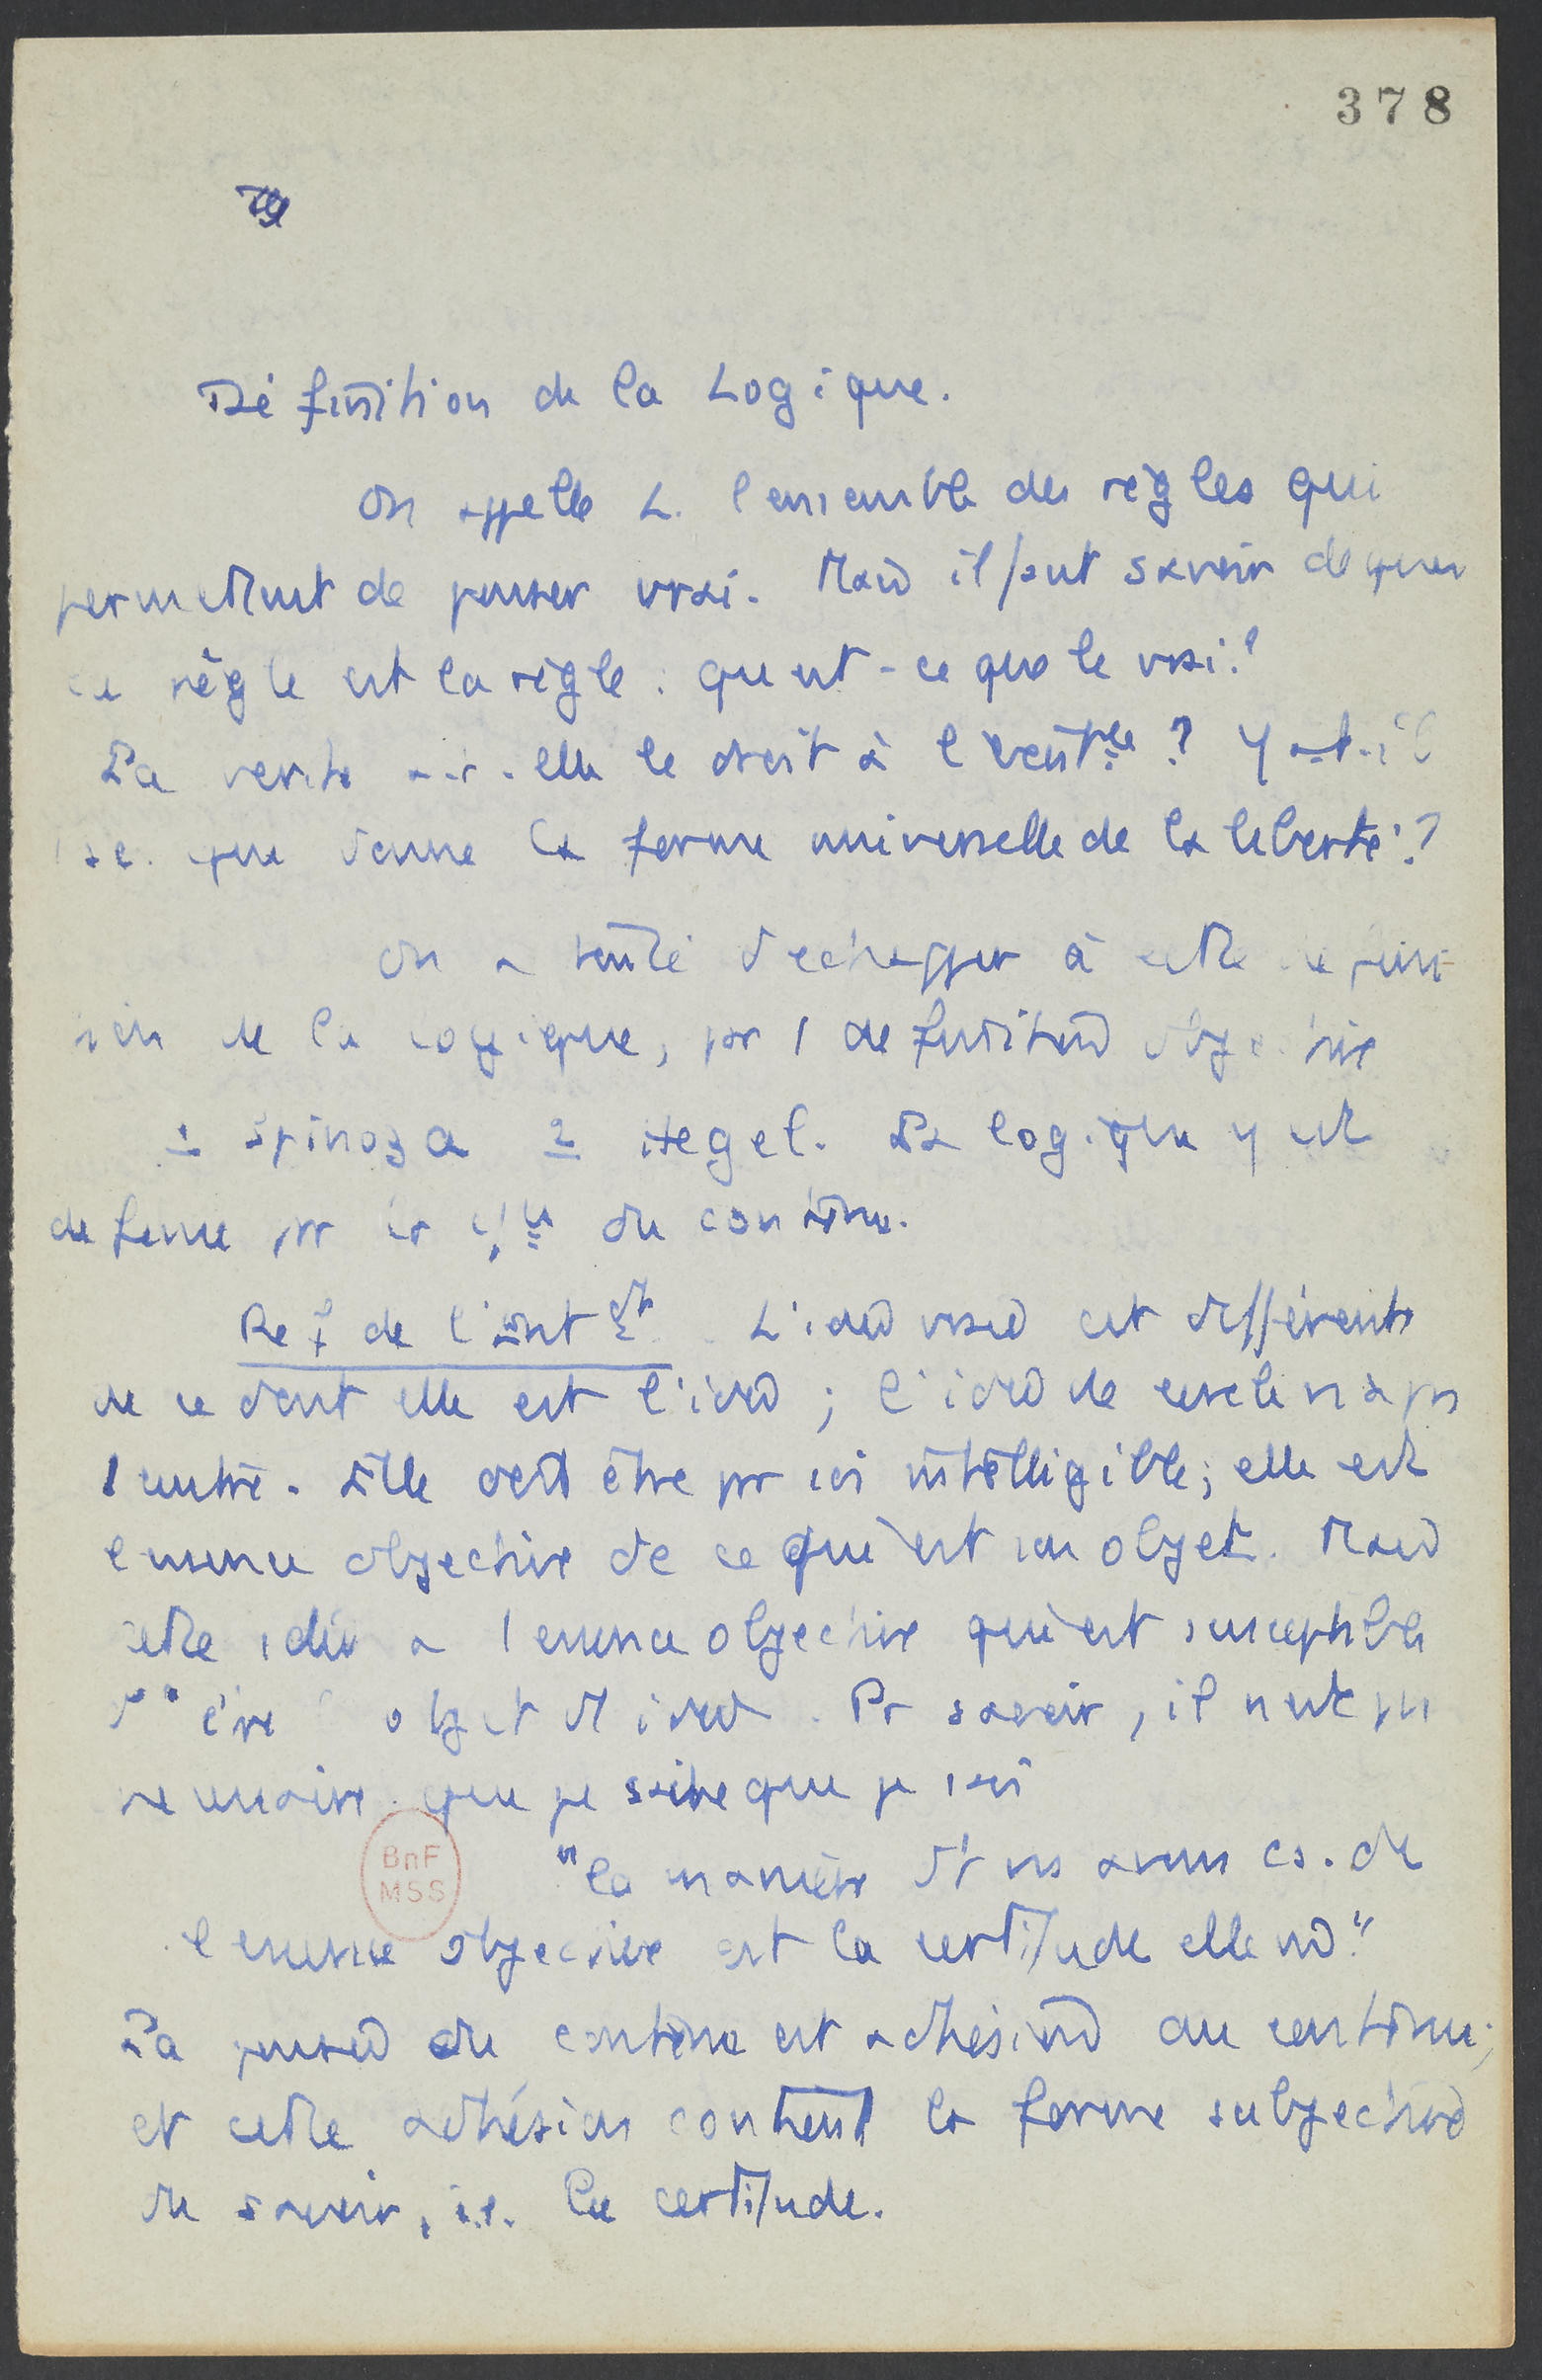 378
Définition de la Logique.
On appelle L. l'ensemble des règles qui
permettent de penser vrai. Mais il faut savoir de quoi
la règle est la règle : qu'est-ce que le vrai ?
La vérité a-t-elle le droit à l' ? Y a-t-il
que donne la forme universelle de la liberté ?
On a tenté d'échapper à cette
de la logique, par 1 définition objective
1 Spinoza 2 Hegel. La logique y est
définie par la du contenu.
Ref de l'Ent dt. L'idée vraie est différente
de ce dont elle est l'idée ; l'idée de cercle n'a pas
1 centre. Elle doit être par soi intelligible ; elle est
l'essence objective de ce qui est son objet. Mais
cette idée a 1 essence objective qui est susceptible
d'être objet d'1 idée. Pr savoir, il n'est pas
nécessaire que je sache que je sais
"la manière dt ns avons cs. de
l'essence objective est la certitude elle m."
La pensée du contenu est adhésion au contenu ;
et cette adhésion contient la forme subjective
du savoir, i.e. la certitude.
BnF
MSS